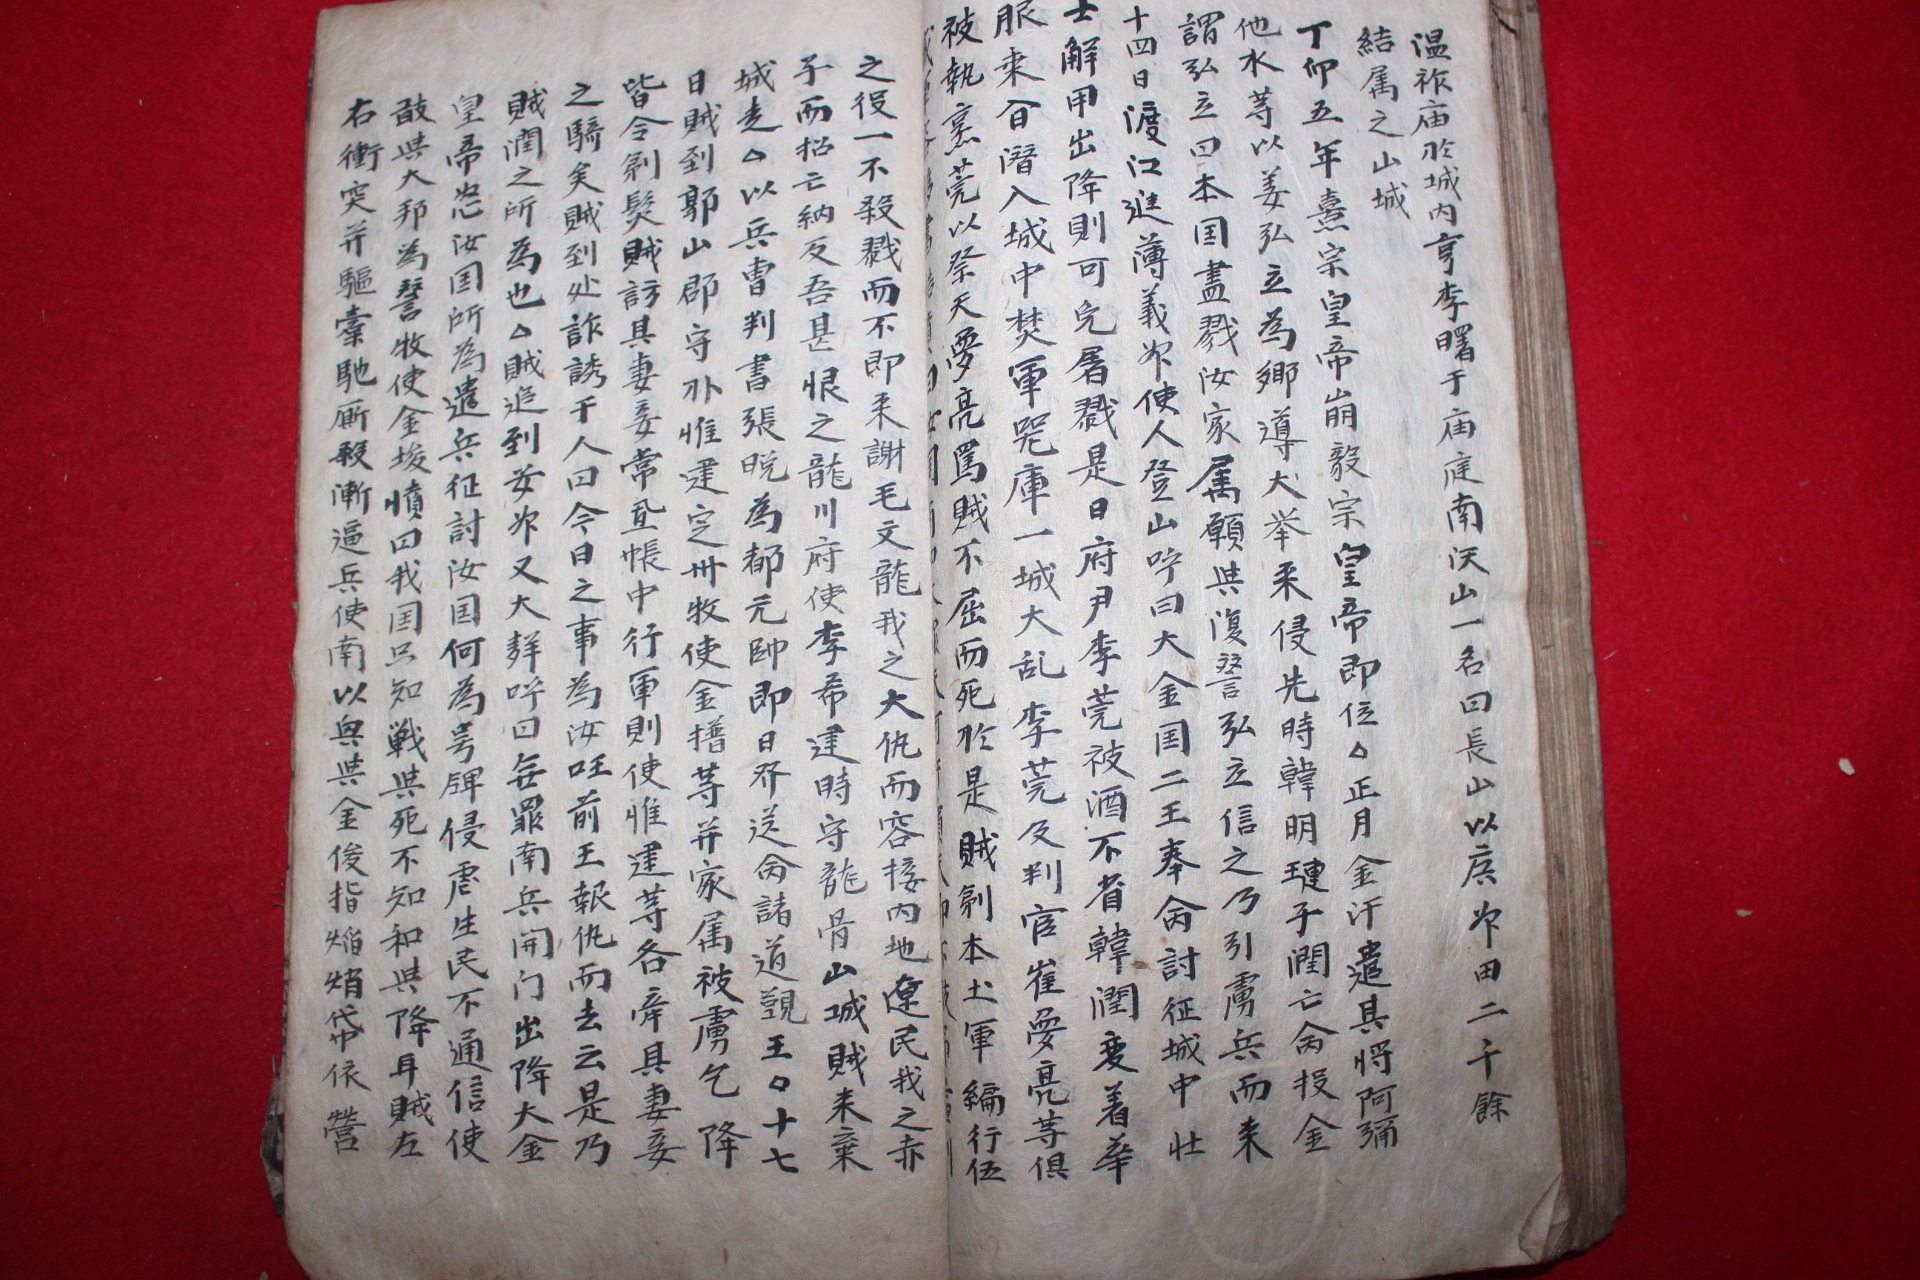 温祚庙於城内亨李曙于庙庭南汉山一名曰長山以広州田二千餘
結属之山城
丁卯五年熹宗皇帝崩毅宗皇帝即位△正月金汗遣其将阿彌
他水等以姜弘立為郷導大举来侵先時韓明璉子潤亡命投金
謂弘立曰本国盡戮汝家属願共復讐弘立信之乃引虜兵而来
十四日渡江進薄義州使人登山呼曰大金国二王奉命討征城中壮
士解甲出降則可免屠戮是日府尹李莞被酒不省韓潤変着華
服乗昏潛入城中焚軍器庫一城大乱李莞及判官崔夢亮等俱
被執烹莞以祭天夢亮罵賊不屈而死於是賊剃本土軍編行伍
之役一不殺戮而不即来謝毛文龍我之大仇而容接内地遼民我之赤
子而招亡納反吾甚恨之龍川府使李希建時守龍骨山城賊来棄
城走△以兵曺判書張晩為都元帥即日發送命諸道覲王○十七
日賊到郭山郡守朴惟建定州牧使金搢等并家属被虜乞降
皆令剃髮賊訪其妻妾常置帳中行軍則使惟建等各牽其妻妾
之騎矣賊到处詐誘于人曰今日之事為汝旺前王報仇而去云是乃
賊潤之所為也△賊追到安州又大呼曰無罪南兵開门出降大金
皇帝怒汝国所為遣兵征討汝国何為侵虐生民不通信使
敢與大邦為讐牧使金埈憤曰我国只知戦與死不知和與降耳賊左
右衝突并驅橐馳廝殺漸逼兵使南以興與金俊指依營